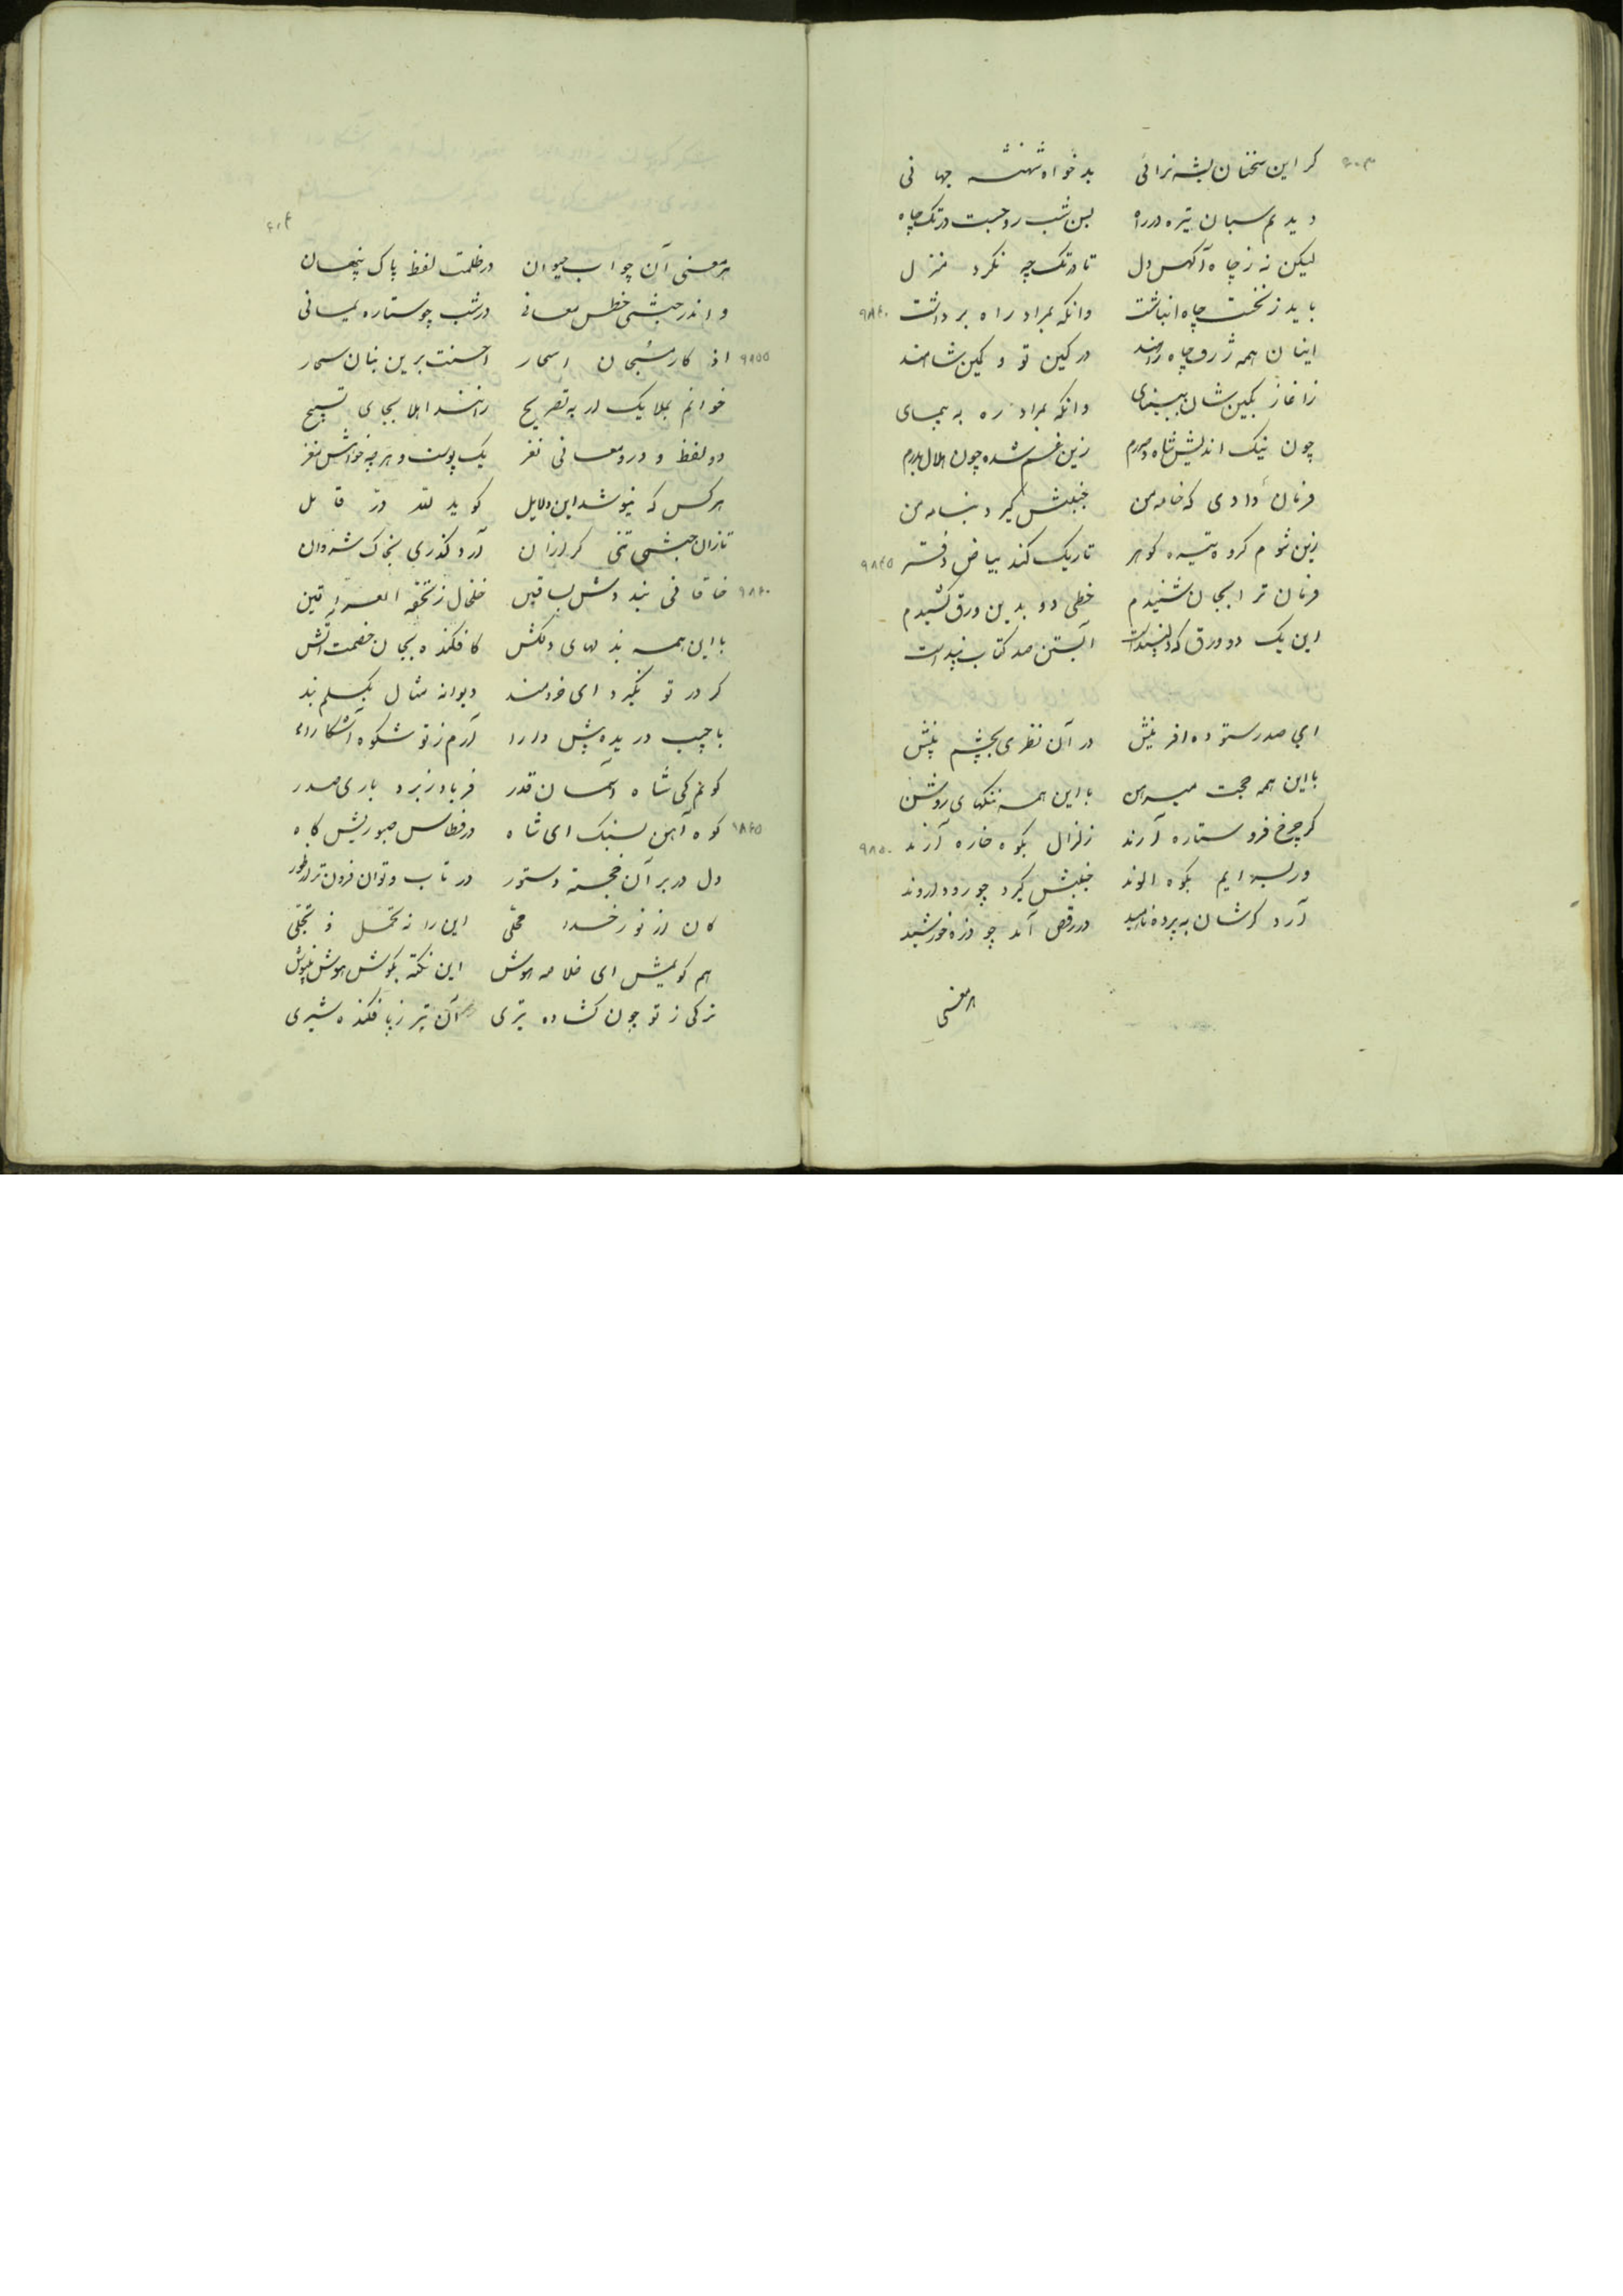 ۶۰۳
گر این سخنان بشه نرائی بدخواه شهنشه جهانی
دیدیم بسان تیره در راه بس شب رو جست در تک چاه
لیکن نه ز چاه آگهش دل تا در تک چه نکرد منزل
باید ز نخست چاه انباشت وانگه بمراد راه برداشت ۹۸۴۰
اینان همه ژرف چاه راهند در کین تو و کمین شاهند
ز آغاز بکین شان وانگه بمراد ره به پیمای
چون نیک اندیش شاه و صدرم زین غم شده چون هلال بدرم
فرمان دادی که خامه من جنبش گیرد بنامه من
زین شوم گروه تیره گوهر تاریک کند بیاض دفتر ۹۸۴۵
فرمان ترا بجان شنیدم خطی دو بدین ورق کشیدم
این یک دو ورق که آبستن صد کتاب پند است
ای صدر ستوده آفرینش در آن نظری بچشم بینش
با این همه حجت مبرهن با این همه نکتهای روشن
گر چرخ فرو ستاره آرند زلزال بکوه خاره آرند ۹۸۵۰
ور بسرایم بکوه الوند جنبش گیرد چو رود اروند
آرد گرشان به پرده ناهید در رقص آید چو ذره خورشید
هر معنی
۶۰۴
هر معنی آن چو آب حیوان در ظلمت لفظ پاک پنهان
و اندر حبشی خطش معانی در شب چو ستاره یمانی
اذکار مسبحان اسحار احسنت برین بنان سحار ۹۸۵۵
خوانم بملایک ار به تصریح رانند اهلا بجای تسبیح
دو لفظ و درو معانی نغز یک پوست و هر چه خواهش مغز
هر کس که نیوشد این دلایل گوید لله در قائل
تا زان حبشی تنی گرازان آرد گذری بخاک شروان
خاقانی بنددش بساقین خلخال ز تحفة العراقین ۹۸۶۰
با این همه پندهای دلکش کافکنده بجان خصمت آتش
گر در تو نگیرد ای خردمند دیوانه مثال بگسلم بند
با جیب دریده پیش دارا آرم ز تو شکوه آشکارا
گویم کی شاه آسمان قدر فریاد ز بردباری صدر
کوه آهن سنبک ای شاه در قطاس صبوریش کاه ۹۸۶۵
دل در بر آن خجسته دستور در تاب و توان فزون تر از طور
کان از نور خدا محلی این را نه تحمل تجلی
هم گویمش ای خلاصه هوش این نکته بگوش هوش بنیوش
ترکی ز تو چون گشاده تیری آن تیر ز پا فکنده شیری